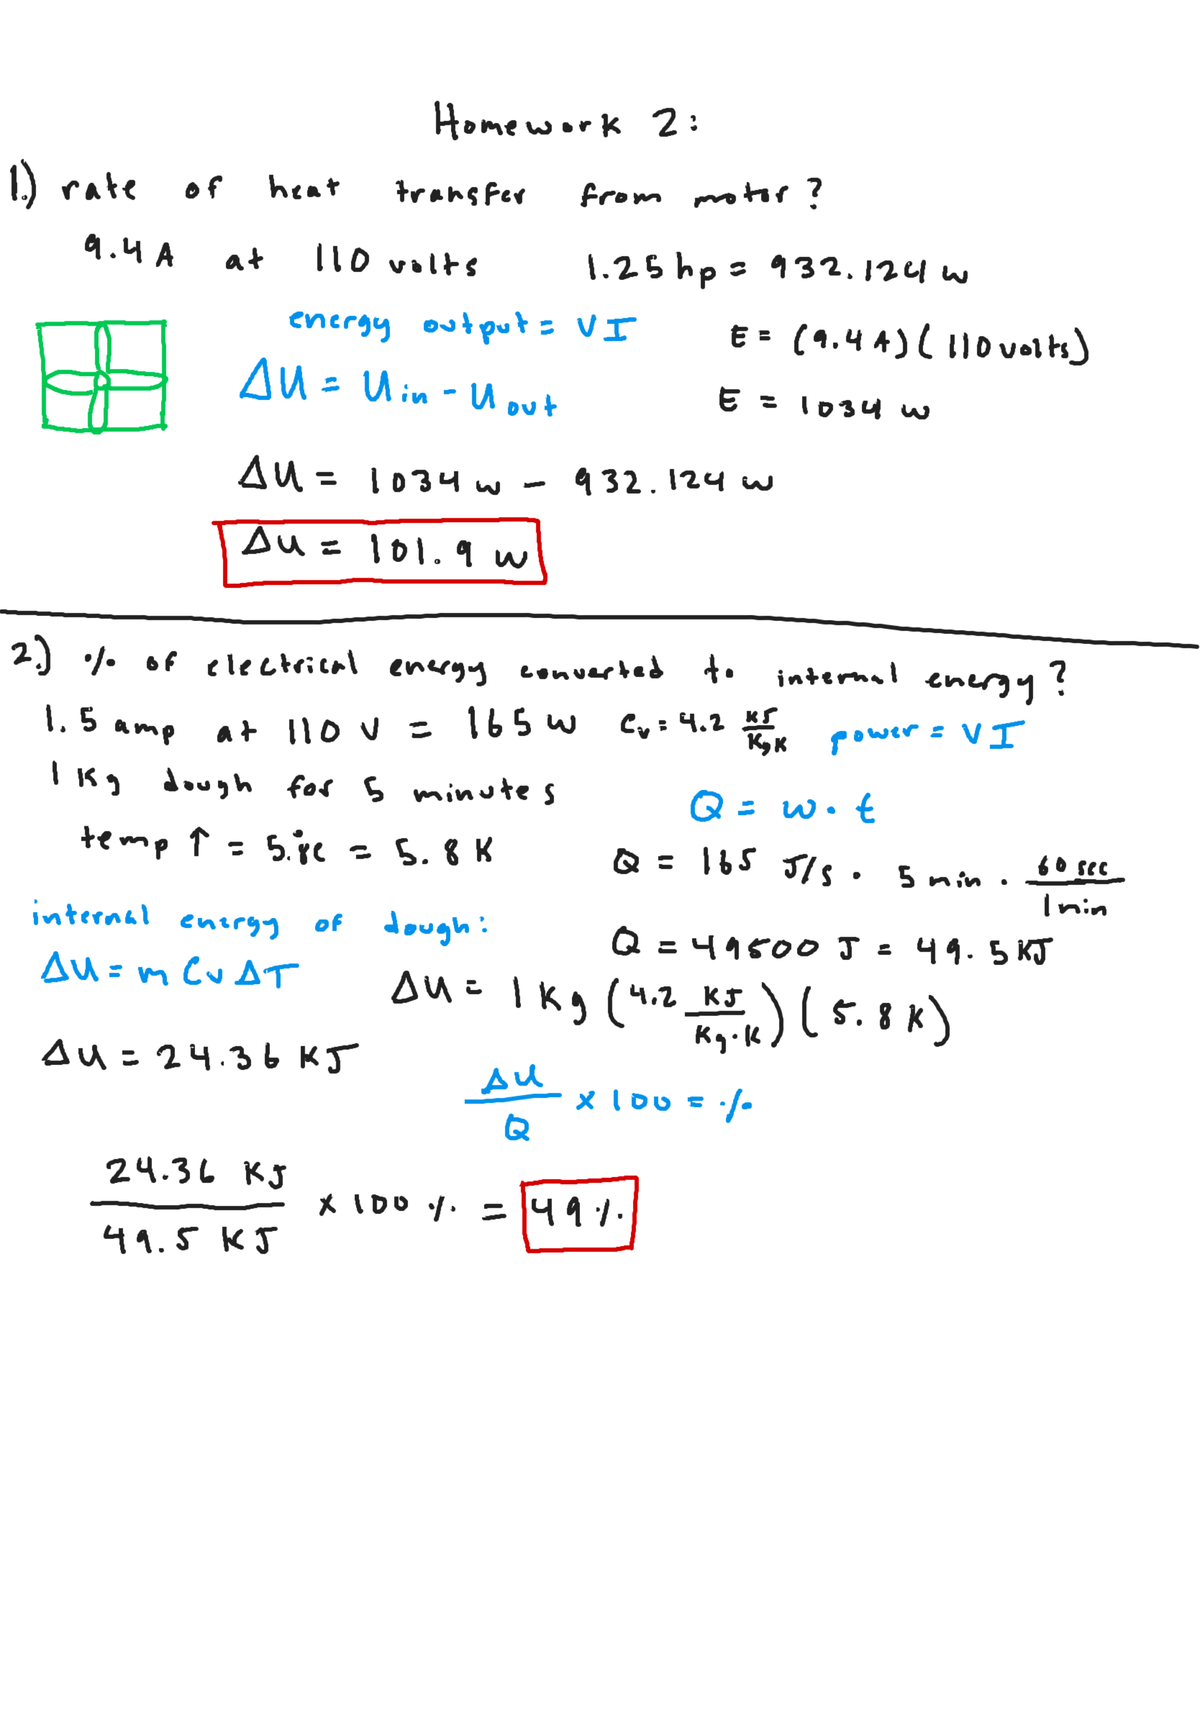 Homework 2:
1.) rate of heat transfer from motor?
9.4 A at 110 volts 1.25 hp = 932.124 w
energy output = VI E = (9.4 A)(110 volts)
ΔU = Uin - Uout E = 1034 w
ΔU = 1034 w - 932.124 w
ΔU = 101.9 w
2.) % of electrical energy converted to internal energy?
1.5 amp at 110 V = 165 w Cv = 4.2 KJ/Kg K power = VI
1 Kg dough for 5 minutes Q = w · t
temp ↑ = 5.8°C = 5.8 K Q = 165 J/s · 5 min · 60 sec/1 min
internal energy of dough: Q = 49500 J = 49.5 KJ
ΔU = m Cv ΔT ΔU = 1 Kg (4.2 KJ/Kg·K)(5.8 K)
ΔU = 24.36 KJ
ΔU/Q × 100 = %
24.36 KJ/49.5 KJ × 100 % = 49 %